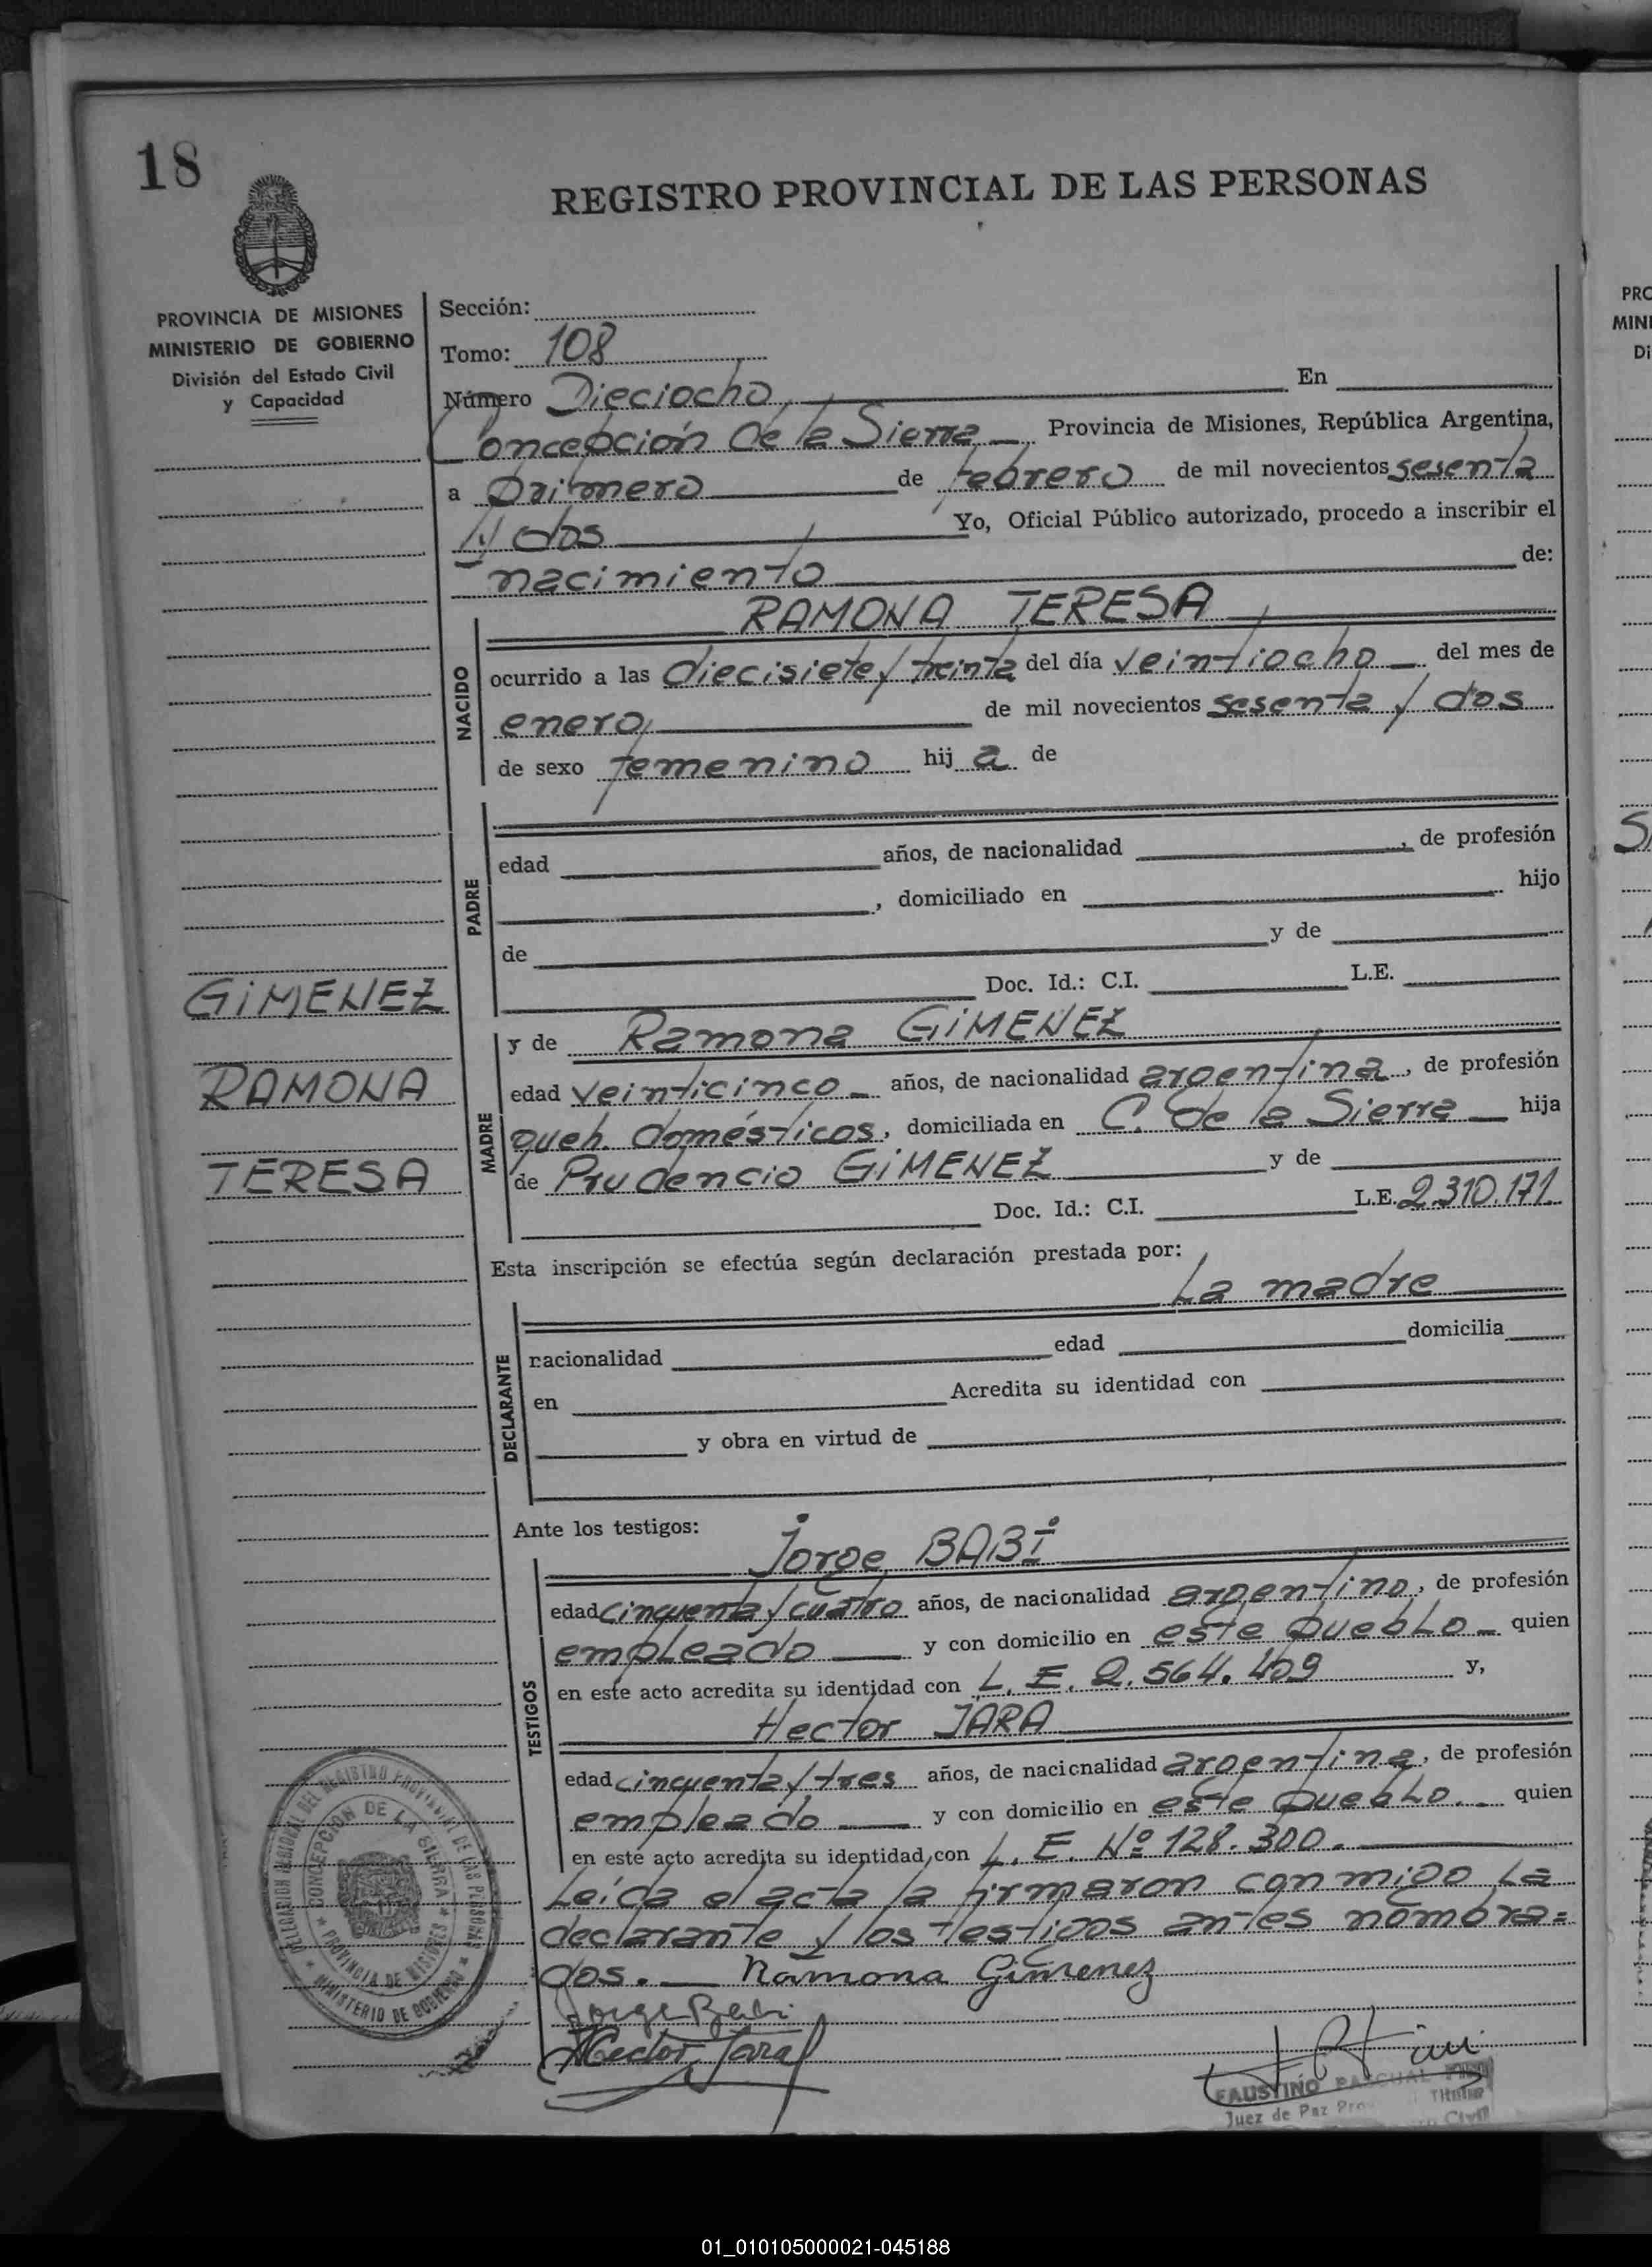 18
REGISTRO PROVINCIAL DE LAS PERSONAS
PROVINCIA DE MISIONES
MINISTERIO DE GOBIERNO
División del Estado Civil
y Capacidad
Sección:
Tomo: 108
Número Dieciocho, En
Concepción de la Sierra Provincia de Misiones, República Argentina,
a primero de febrero de mil novecientos sesenta
y dos Yo, Oficial Público autorizado, procedo a inscribir el
nacimiento de:
RAMONA TERESA
NACIDO
ocurrido a las diecisiete y treinta del día veintiocho del mes de
enero, de mil novecientos sesenta y dos
de sexo femenino hij a de
PADRE
edad años, de nacionalidad , de profesión
, domiciliado en hijo
de y de
Doc. Id.: C.I. L.E.
GIMENEZ
RAMONA
TERESA
MADRE
y de Ramona GIMENEZ
edad veinticinco años, de nacionalidad argentina, de profesión
queh. domésticos, domiciliada en C. de la Sierra hija
de Prudencio GIMENEZ y de
Doc. Id.: C.I. L.E. 2.310.171.
Esta inscripción se efectúa según declaración prestada por:
La madre
DECLARANTE
nacionalidad edad domicilia
en Acredita su identidad con
y obra en virtud de
Ante los testigos:
Jorge BABI
TESTIGOS
edad cincuenta y cuatro años, de nacionalidad argentino, de profesión
empleado y con domicilio en este pueblo quien
en este acto acredita su identidad con L. E. 2.564.409 y,
Hector JARA
edad cincuenta y tres años, de nacionalidad argentina, de profesión
empleado y con domicilio en este pueblo. quien
en este acto acredita su identidad con L. E. Nº 128.300.
Leída el acta la firmaron conmigo la
declarante y los testigos antes nombra=
dos. Ramona Gimenez
Jorge Babi
Hector Jara
DELEGACION REGIONAL DEL REGISTRO PROVINCIAL DE LAS PERSONAS
CONCEPCION DE LA SIERRA
PROVINCIA DE MISIONES
MINISTERIO DE GOBIERNO
FAUSTINO PASCUAL
Juez de Paz
Titular
Civil
01_010105000021-045188